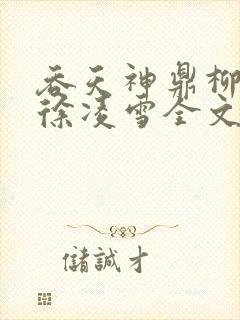 吞天神鼎柳
徐凌雪全文
儲誠才